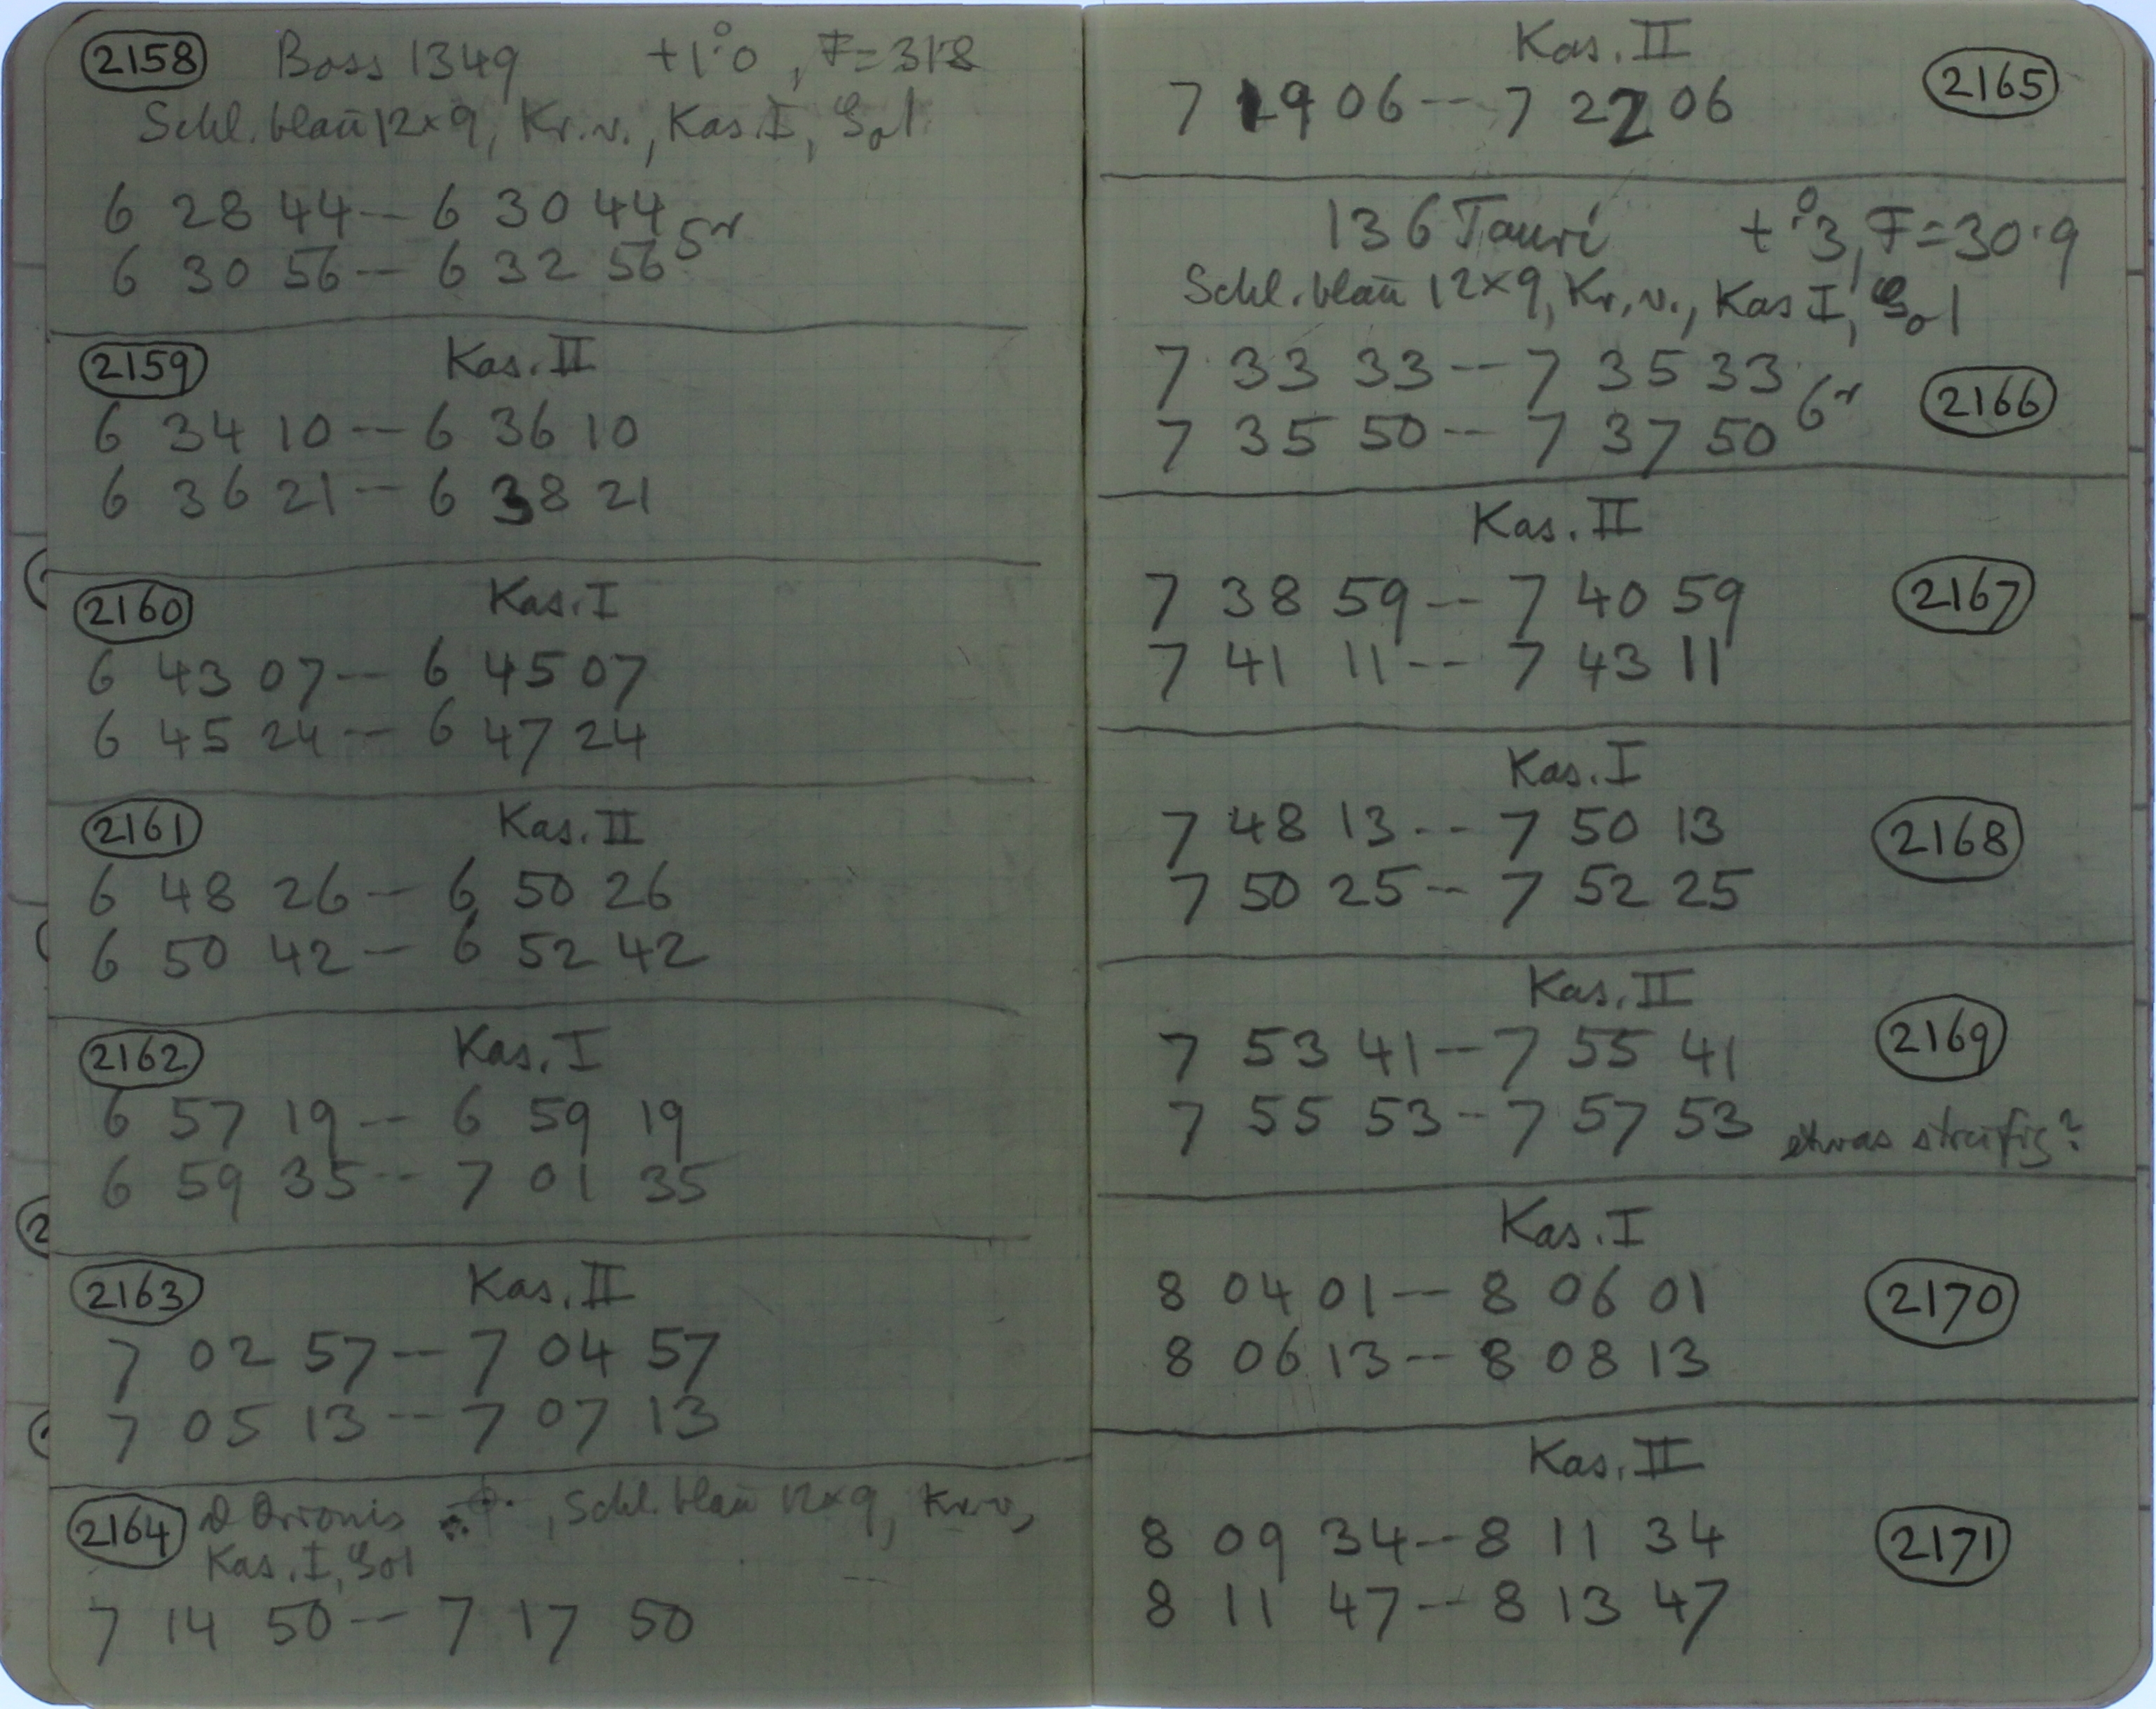 2158 Boss 1349 +1°.0, F=31.8
Schl. blau 12×9, Kr. v., Kas. I,
6 28 44 -- 6 30 44
6 30 56 -- 6 32 56 5r
2159 Kas. II
6 34 10 -- 6 36 10
6 36 21 -- 6 38 21
2160 Kas. I
6 43 07 -- 6 45 07
6 45 24 -- 6 47 24
2161 Kas. II
6 48 26 -- 6 50 26
6 50 42 -- 6 52 42
2162 Kas. I
6 57 19 -- 6 59 19
6 59 35 -- 7 01 35
2163 Kas. II
7 02 57 -- 7 04 57
7 05 13 -- 7 07 13
2164 Orionis , Schl. blau 12×9, Kr. v.,
Kas. I,
7 14 50 -- 7 17 50
Kas. II
7 19 06 -- 7 22 06 2165
136 Tauri +°.3, F=30.9
Schl. blau 12×9, Kr. v., Kas I,
7 33 33 -- 7 35 33
7 35 50 -- 7 37 50 6r 2166
Kas. II
7 38 59 -- 7 40 59 2167
7 41 11 -- 7 43 11
Kas. I
7 48 13 -- 7 50 13 2168
7 50 25 -- 7 52 25
Kas. II
7 53 41 -- 7 55 41 2169
7 55 53 -- 7 57 53 etwas streifig?
Kas. I
8 04 01 -- 8 06 01 2170
8 06 13 -- 8 08 13
Kas. II
8 09 34 -- 8 11 34 2171
8 11 47 -- 8 13 47